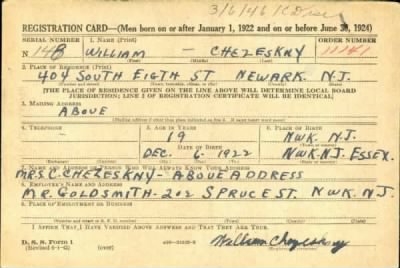 3/6/46 KC Disc
REGISTRATION CARD—(Men born on or after January 1, 1922 and on or before June 30, 1924)
SERIAL NUMBER 1. NAME (Print) ORDER NUMBER
N 148 WILLIAM — CHEZESKNY 11141
(First) (Middle) (Last)
2. PLACE OF RESIDENCE (Print)
404 SOUTH EIGTH ST NEWARK. N.J.
[THE PLACE OF RESIDENCE GIVEN ON THE LINE ABOVE WILL DETERMINE LOCAL BOARD
JURISDICTION; LINE 2 OF REGISTRATION CERTIFICATE WILL BE IDENTICAL]
3. MAILING ADDRESS
ABOVE
4. TELEPHONE 5. AGE IN YEARS 6. PLACE OF BIRTH
19 NWK. N.J.
DATE OF BIRTH
DEC. 6. 1922 NWK.N.J. ESSEX.
7. NAME AND ADDRESS OF PERSON WHO WILL ALWAYS KNOW YOUR ADDRESS
MRS. C. CHEZESKNY — ABOVE ADDRESS
8. EMPLOYER'S NAME AND ADDRESS
MR. GOLDSMITH. 202 SPRUCE ST. NWK. N.J.
9. PLACE OF EMPLOYMENT OR BUSINESS
I AFFIRM THAT I HAVE VERIFIED ABOVE ANSWERS AND THAT THEY ARE TRUE.
D. S. S. Form 1
William Chezeskny